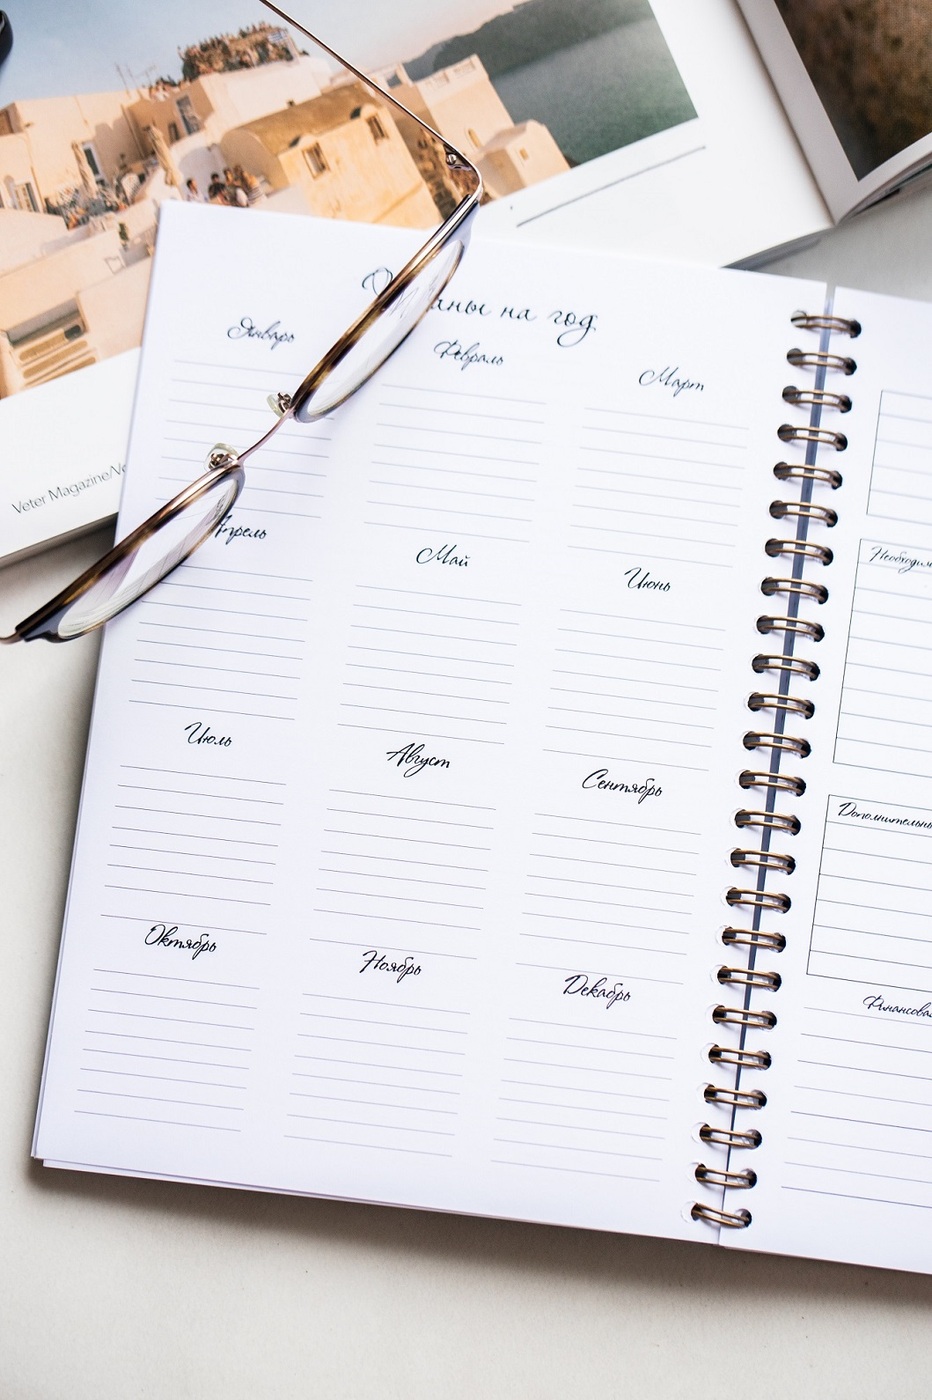 Veter Magazine/Ve
аны на год
Январь
Февраль
Март
Апрель
Май
Июнь
Июль
Август
Сентябрь
Октябрь
Ноябрь
Декабрь
Необходим
Дополнительны
Финансова